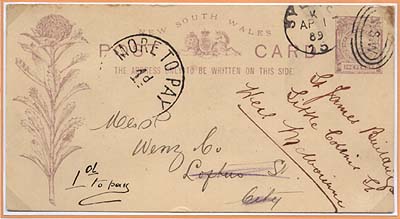 NEW SOUTH WALES
POST CARD
THE ADDRESS ONLY TO BE WRITTEN ON THIS SIDE.
AP 1
89
75
N.S.W
MORE TO PAY
1d
Messrs
Wenz & Co
Loftus St
City
St James Buildings
Little Collins St
West Melbourne
1d To pay